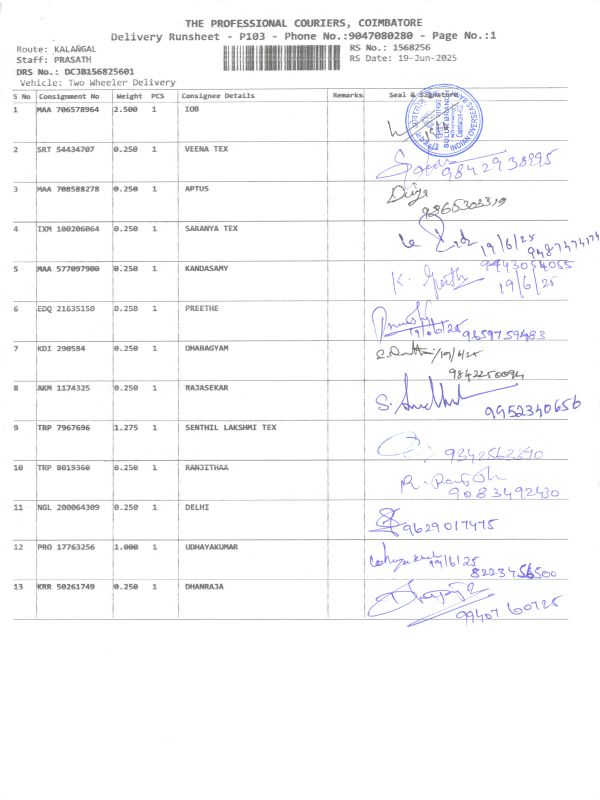 THE PROFESSIONAL COURIERS, COIMBATORE
Delivery Runsheet - P103 - Phone No.:9047080280 - Page No.:1
Route: KALANGAL RS No.: 1568256
Staff: PRASATH RS Date: 19-Jun-2025
DRS No.: DCJB156825601
Vehicle: Two Wheeler Delivery
S No Consignment No Weight PCS Consignee Details Remarks Seal & Signature
1 MAA 706578964 2.500 1 IOB
INDIAN OVERSEAS
2 SRT 54434707 0.250 1 VEENA TEX
9842938895
3 MAA 708588278 0.250 1 APTUS Divya
9865303319
4 IXM 100206064 0.250 1 SARANYA TEX 19/6/25
9487474174
5 MAA 577097900 0.250 1 KANDASAMY 9943054055
K. 19/6/25
6 EDQ 21635150 0.250 1 PREETHE
19/06/25 9659759483
7 KDI 290584 0.250 1 DHABAGYAM 19/6/25
9842250094
8 AKM 1174325 0.250 1 RAJASEKAR S.
9952340656
9 TRP 7967696 1.275 1 SENTHIL LAKSHMI TEX
9342562390
10 TRP 8019360 0.250 1 RANJITHAA R.
9083492430
11 NGL 200064309 0.250 1 DELHI
9629017475
12 PRO 17763256 1.000 1 UDHAYAKUMAR 19/6/25
8223456500
13 KRR 50261749 0.250 1 DHANRAJA
9940760725